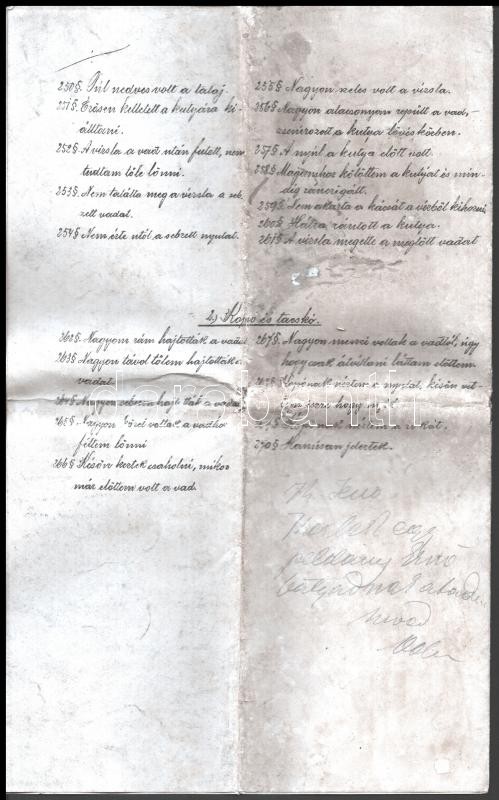 250§ Túl nedves volt a talaj.
251§ Erősen kelletett a kutyára ki-
álltani.
252§ A vizsla a vad után futott, nem
tudtam tőle lőnni.
253§ Nem találta meg a vizsla a seb-
zett vadat.
254§ Nem érte utól a sebzett nyulat.
255§ Nagyon szeles volt a vizsla.
256§ Nagyon alacsonyan repült a vad,
szenirozott a kutya lövés közben.
257§ A nyúl a kutya előtt volt.
258§ Magamhoz kötöttem a kutyát és min-
dig ránczigált.
259§ Nem akarta a kácsát a vizből kihozni.
260§ Hátra rántott a kutya.
261§ A vizsla megette a meglőtt vadat
2, Kopó és tacskó.
262§ Nagyon rám hajtották a vadat
263§ Nagyon távol tőlem hajtották a
vadat.
264§ Nagyon sebesen hajtották a vadat
265§ Nagyon közel voltak a vadhoz
féltem lőnni
266§ Későn kertek csaholni, mikor
már előttem volt a vad.
267§ Nagyon messi voltak a vadtól, úgy
hogy csak átvillani láttam előttem
nyulat, későn vet-
tem észre hogy
a rókát.
270§ Hamisan jeleztek.
Jenő
egy
példány